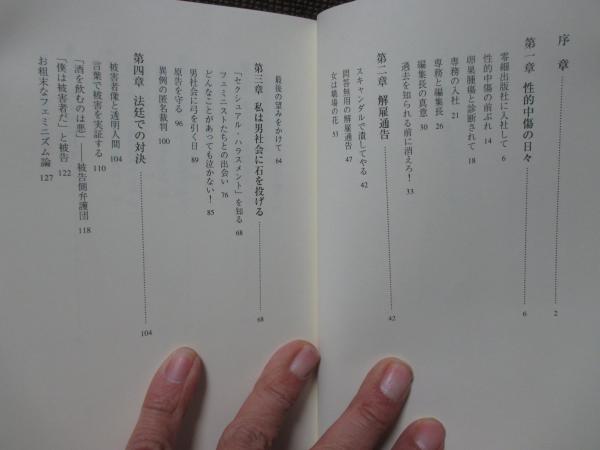 序 章 2
第一章 性的中傷の日々 6
零細出版社に入社して 6
性的中傷の前ぶれ 14
卵巣腫瘍と診断されて 18
専務の入社 21
専務と編集長 26
編集長の真意 30
過去を知られる前に消えろ! 33
第二章 解雇通告 42
スキャンダルで潰してやる 42
問答無用の解雇通告 47
女は職場の花 53
最後の望みをかけて 64
第三章 私は男社会に石を投げる 68
「セクシュアル・ハラスメント」を知る 68
フェミニストたちとの出会い 76
どんなことがあっても泣かない! 85
男社会に弓を引く日 89
原告を守る 96
異例の匿名裁判 100
第四章 法廷での対決 104
被害者像と透明人間 104
言葉で被害を実証する 110
「酒を飲むのは悪」――被告側弁護団 118
「僕は被害者だ」と被告 122
お粗末なフェミニズム論 127